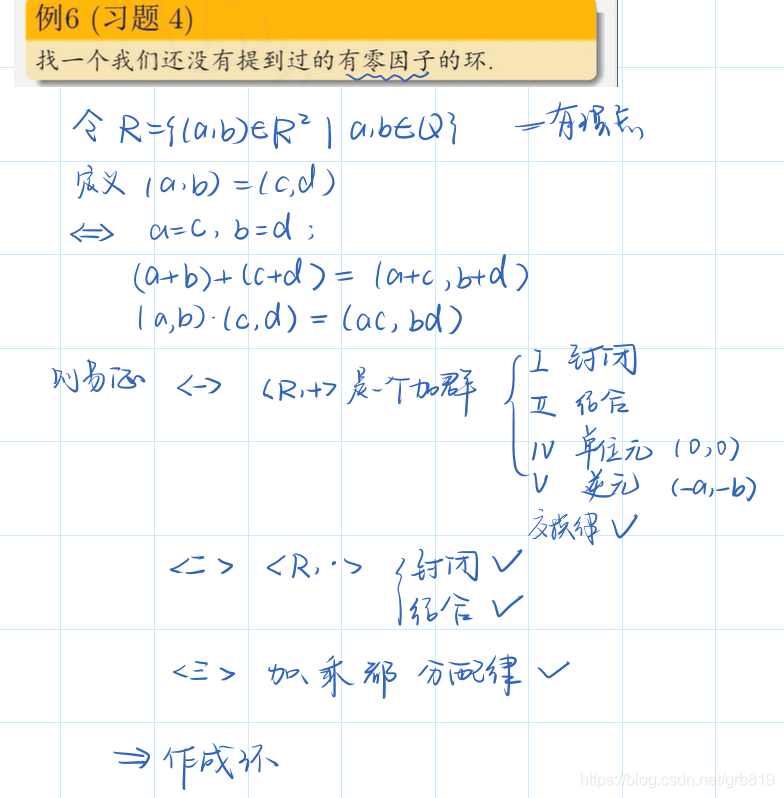 例6 (习题 4)
找一个我们还没有提到过的有零因子的环.
令 R={(a,b)∈R² | a,b∈Q} —有理点
定义 (a,b)=(c,d)
⇔ a=c, b=d ;
(a+b)+(c+d)=(a+c,b+d)
(a,b)·(c,d)=(ac,bd)
则易证 <一> <R,+>是一个加群
I 封闭
II 结合
IV 单位元 (0,0)
V 逆元 (-a,-b)
交换律 ✓
<二> <R,·>
封闭 ✓
结合 ✓
<三> 加、乘都 分配律 ✓
⇒ 作成环
https://blog.csdn.net/grb819